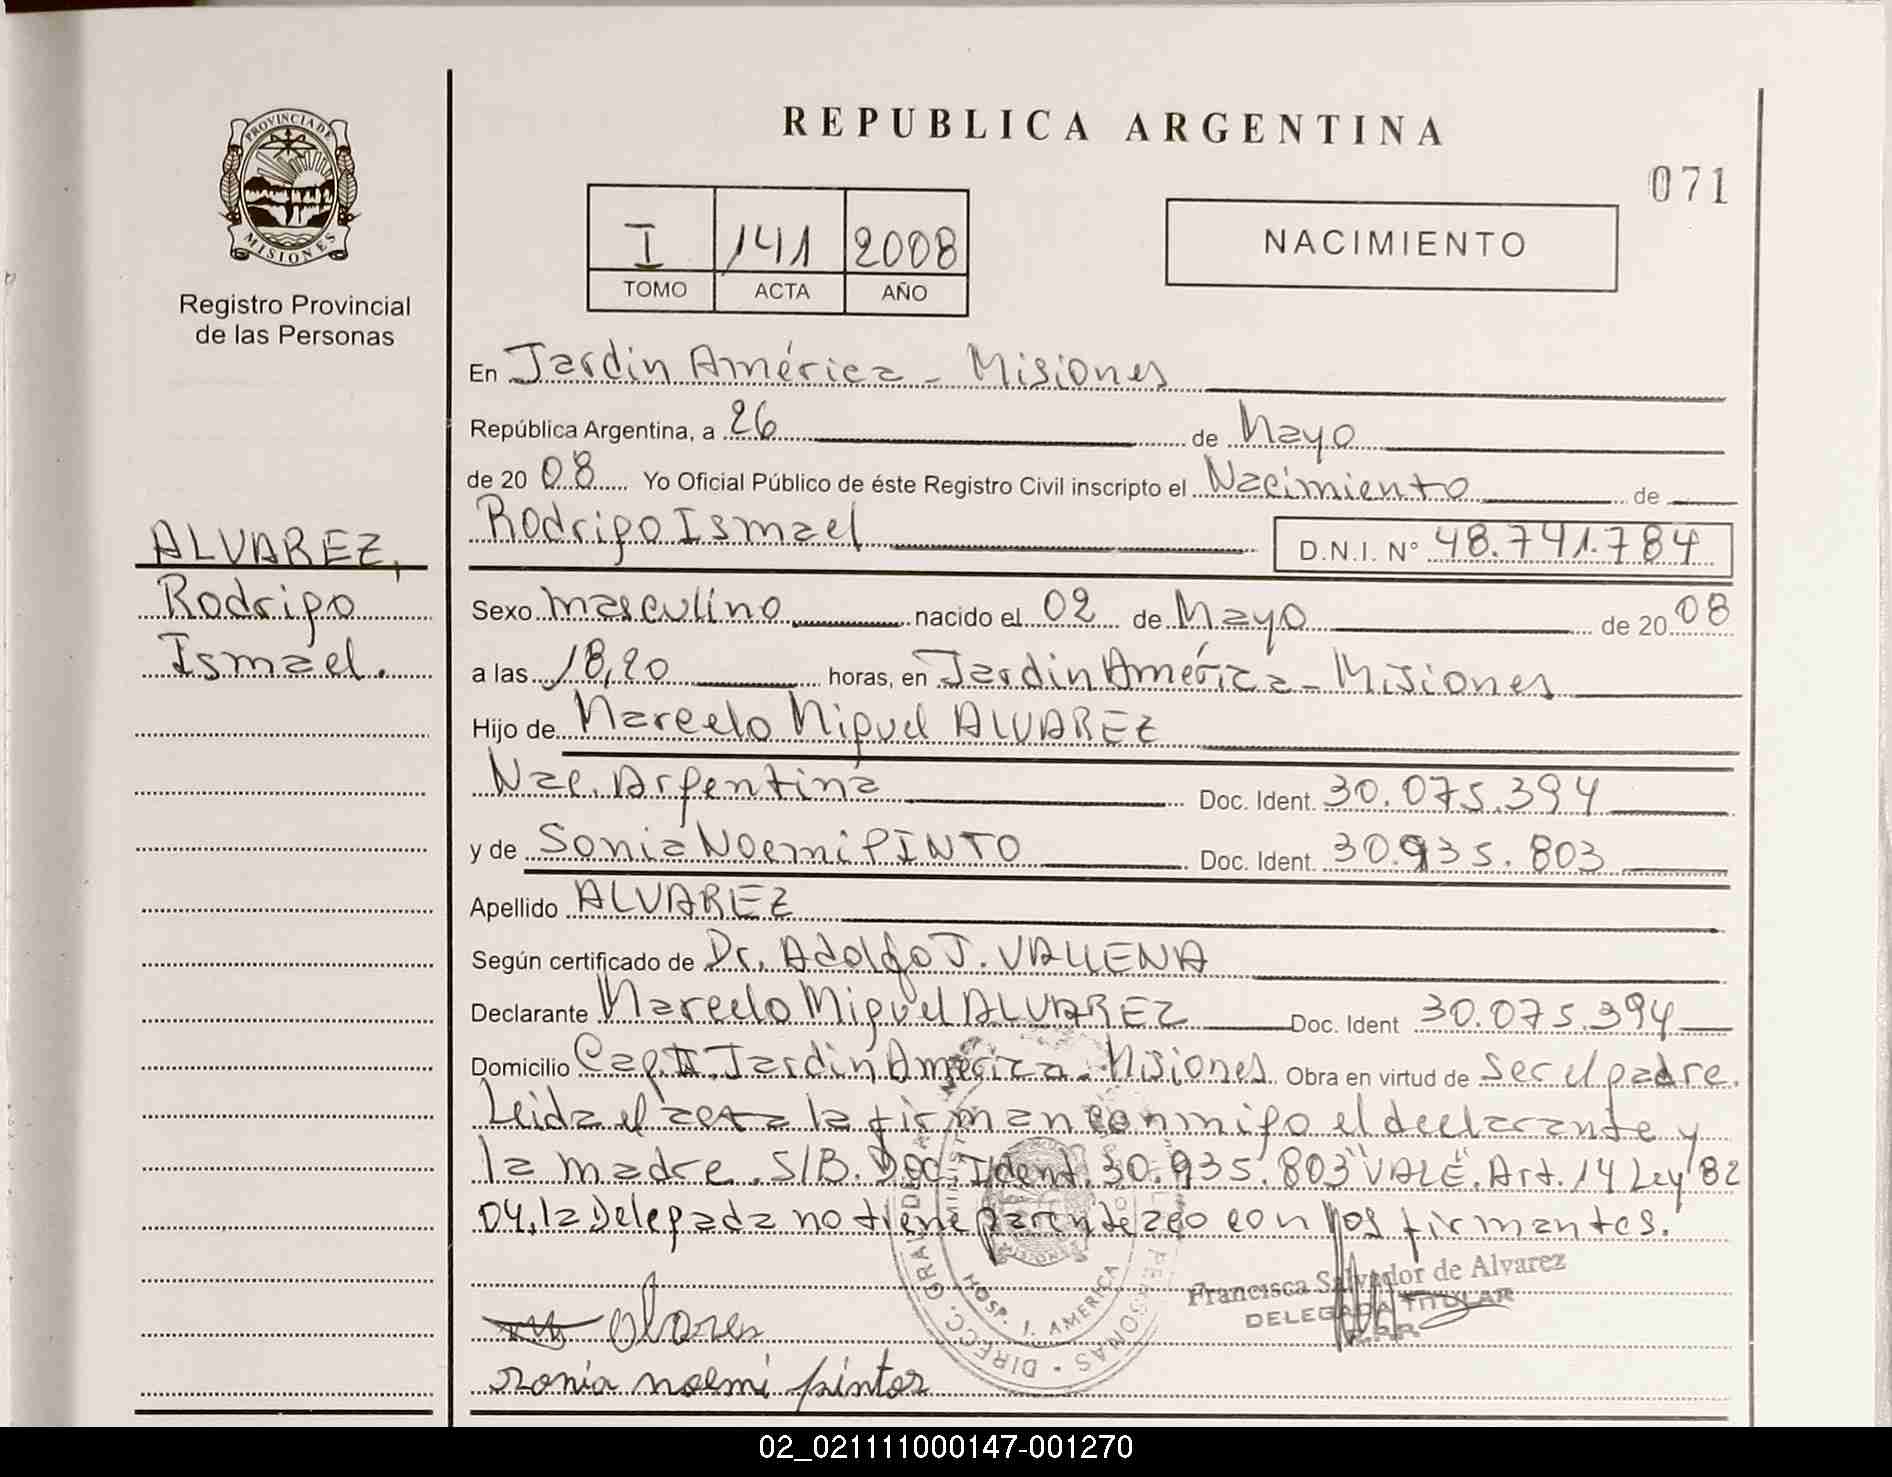 PROVINCIA DE
MISIONES
Registro Provincial
de las Personas
ALVAREZ,
Rodrigo
Ismael.
REPUBLICA ARGENTINA
071
I 141 2008
TOMO ACTA AÑO
NACIMIENTO
En Jardin América - Misiones
República Argentina, a 26 de Mayo
de 2008 Yo Oficial Público de éste Registro Civil inscripto el Nacimiento de
Rodrigo Ismael D.N.I. N° 48.741.784
Sexo masculino nacido el 02 de Mayo de 2008
a las 18,20 horas, en Jardin América - Misiones
Hijo de Marcelo Miguel ALVAREZ
Nac. Argentina Doc. Ident. 30.075.394
y de Sonia Noemi PINTO Doc. Ident. 30.935.803
Apellido ALVAREZ
Según certificado de Dr. Adolfo J. VALLENA
Declarante Marcelo Miguel ALVAREZ Doc. Ident 30.075.394
Domicilio Cap. II. Jardin América - Misiones Obra en virtud de ser el padre.
Leida el acta la firman conmigo el declarante y
la madre. S/B. Doc. Ident. 30.935.803 "VALE". Art. 14 Ley 82
04. la Delegada no tiene parentezco con los firmantes.
DIRECC. GRAL. DE PERSONAS
HOSP. J. AMERICA
Francisca Salvador de Alvarez
DELEGADA TITULAR
sonia noemi pintos
02_021111000147-001270